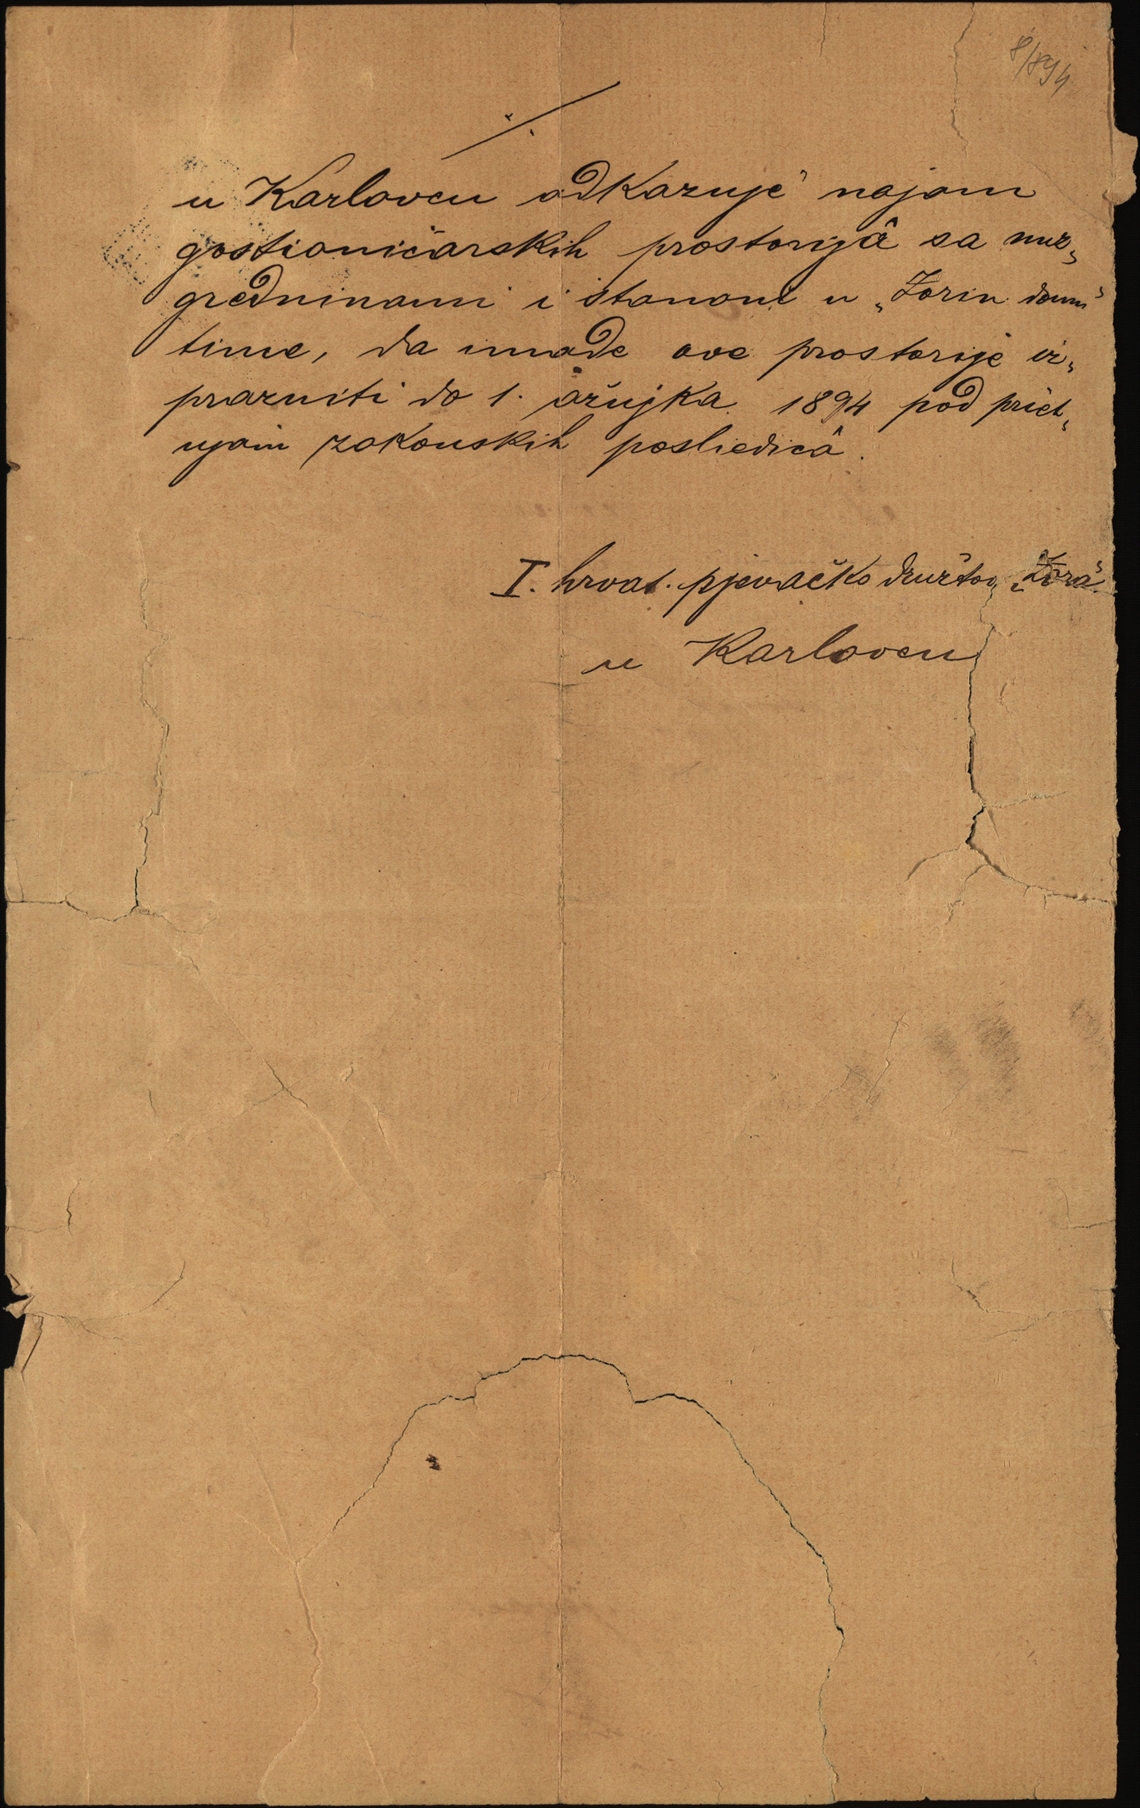 8/894
u Karlovcu odkazuje najam
gostioničarskih prostorijâ sa nuz„
gredninami i stanom u „Zorin domu“
time, da imade ove prostorije iz„
prazniti do 1. ožujka 1894 pod priet„
njom zakonskih posliedicâ.
I. hrvat. pjevačko družtvo „Zora“
u Karlovcu